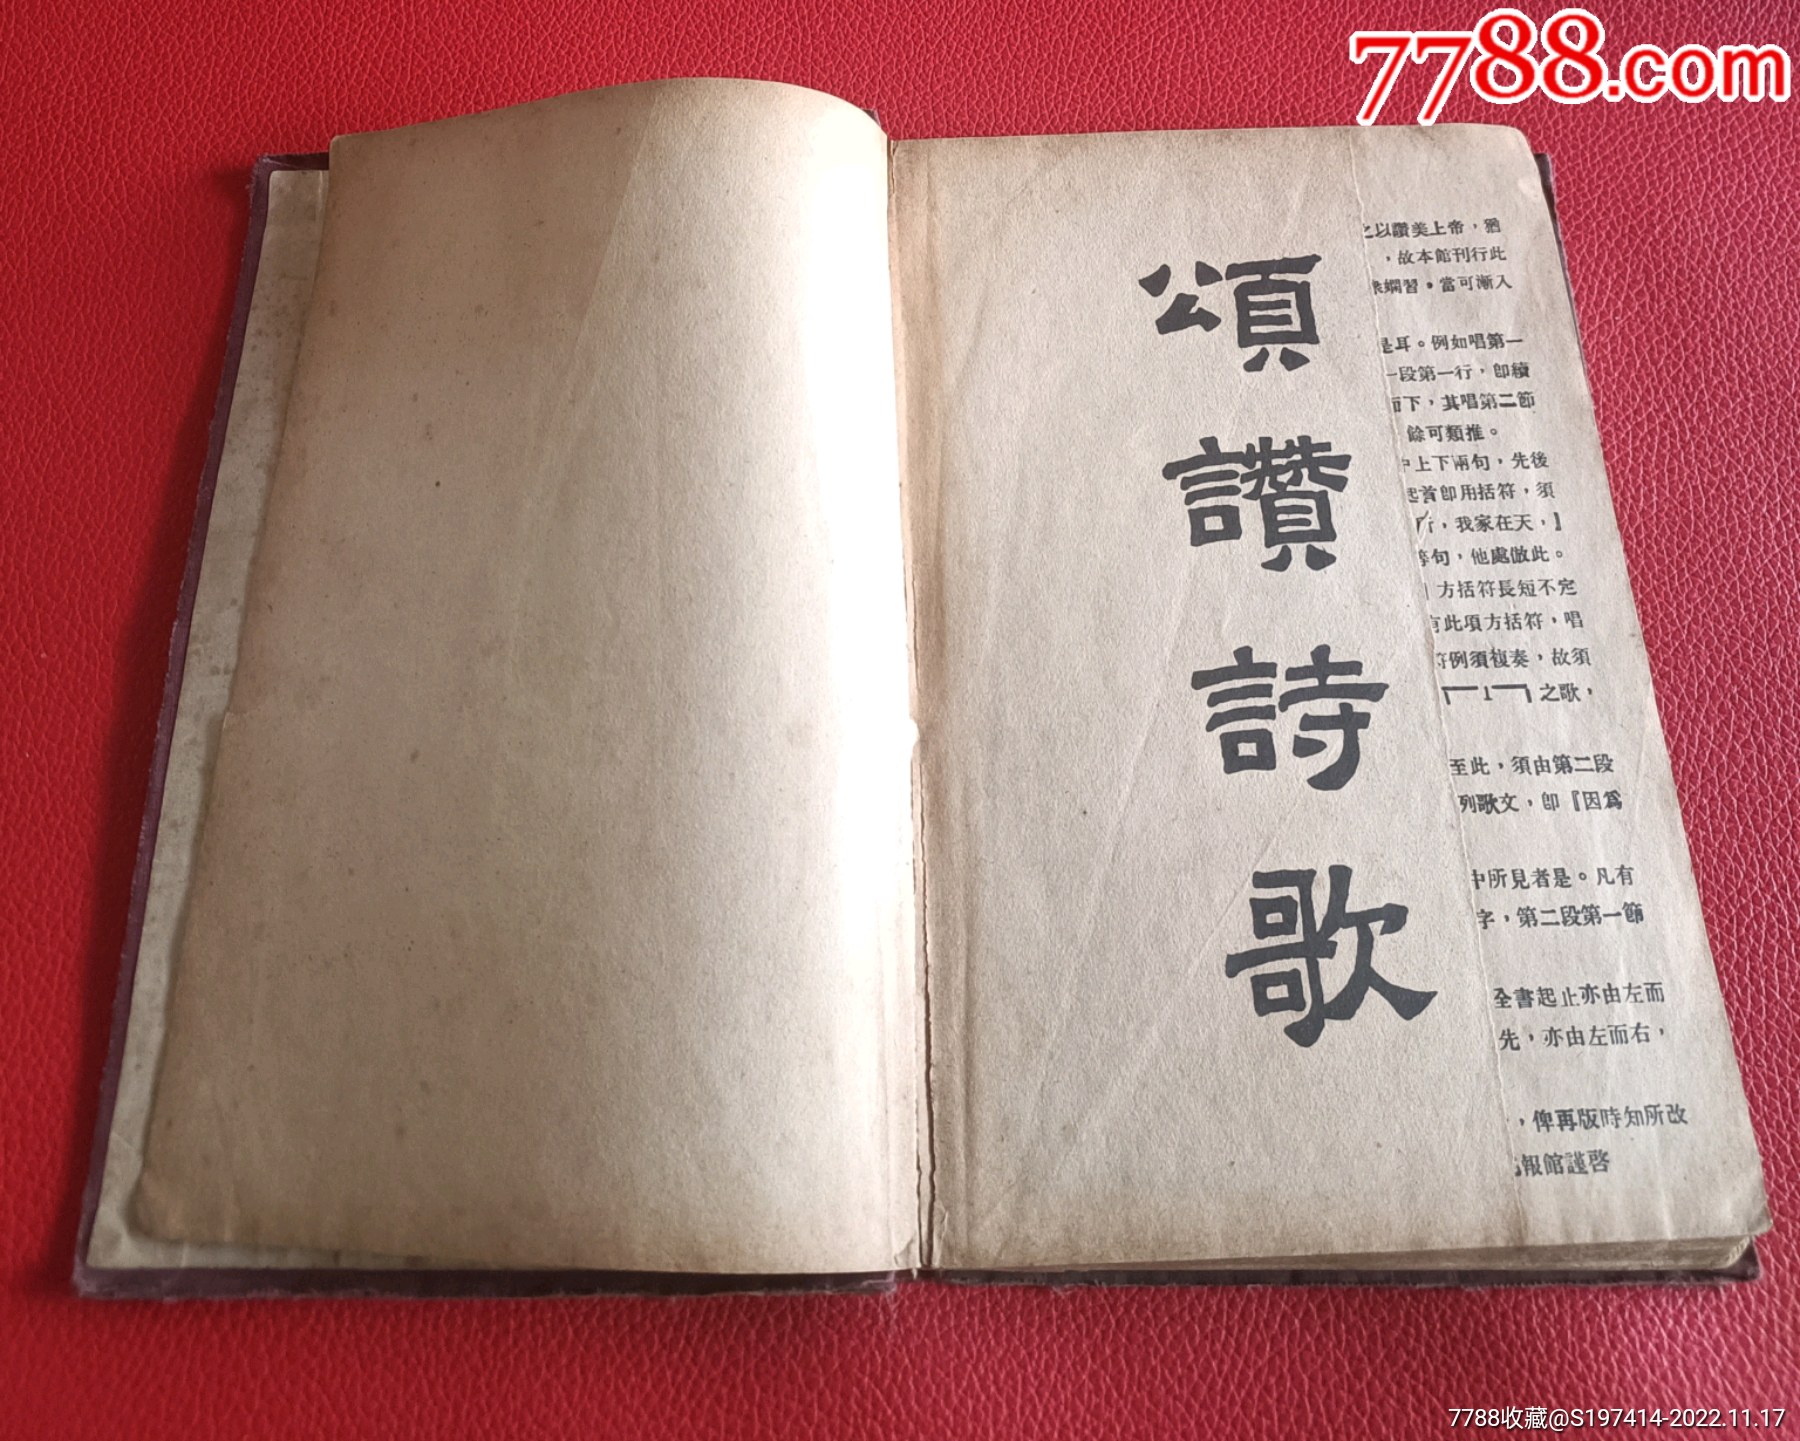 7788.com
頌讚詩歌
之以讚美上帝，猶
，故本館刊行此
嫻習。當可漸入
是耳。例如唱第一
一段第一行，卽續
而下，其唱第二節
餘可類推。
中上下兩句，先後
起首卽用括符，須
行，我家在天，』
等句，他處倣此。
方括符長短不定
有此項方括符，唱
符例須複奏，故須
1 之歌，
至此，須由第二段
列歌文，卽『因爲
中所見者是。凡有
字，第二段第一節
全書起止亦由左而
先，亦由左而右，
，俾再版時知所改
報館謹啓
7788收藏@S197414-2022.11.17